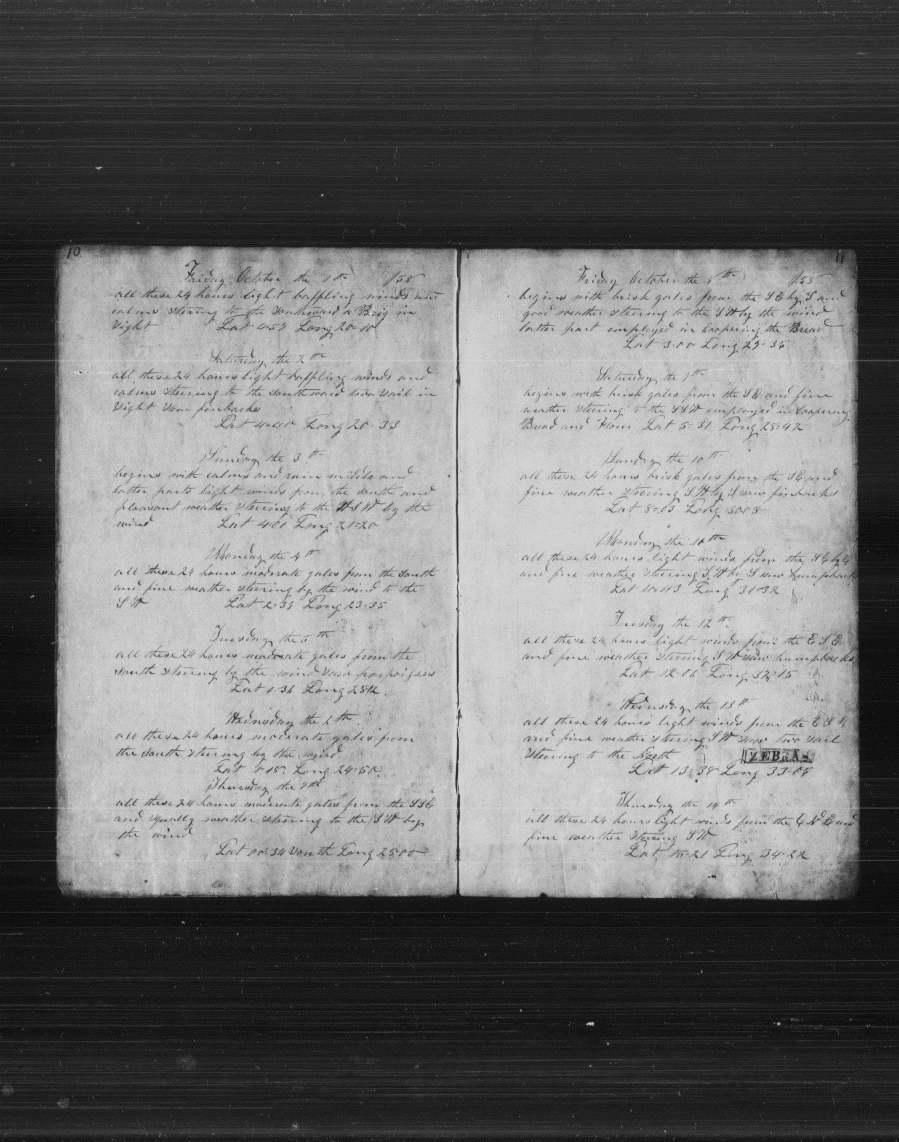 10
Friday October the 1th 1858
all these 24 hours light baffling winds and
calms steering to the Southward a Brig in
Sight Lat 4-57 Long 20-10
Saturday the 2th
all these 24 hours light baffling winds and
calms steering to the Southward Sail in
Sight Saw finbacks
Lat 4-40 Long 20-33
Sunday the 3th
begins with calms and rain middle and
latter parts light winds from the South and
pleasant weather steering to the WSW by the
wind Lat 4-01 Long 21-20
Monday the 4th
all these 24 hours moderate gales from the South
and fine weather steering by the wind to the
SW Lat 2-39 Long 23-35
Tuesday the 5th
all these 24 hours moderate gales from the
South steering by the wind Saw porpoises
Lat 1-36 Long
Wednesday the 6th
all these 24 hours moderate gales from
the South steering by the wind
Lat Long 24-50
Thursday the 7th
all these 24 hours moderate gales from the SSE
and squally weather steering to the SW by
the wind
Lat 00-34 South Long 28-00
11
Friday October the 8th
begins with brisk gales from the SE by S and
good weather steering to the SW by the wind
latter part employed in Coopering the Bread
Lat 3-00 Long 29-35
Saturday the 9th
begins with brisk gales from the SE and fine
weather steering to the SSW employed in Coopering
Bread and Flour Lat 5-31 Long 29-42
Sunday the 10th
all these 24 hours brisk gales from the SE and
fine weather steering SW by S saw finbacks
Lat 8-05 Long
Monday the 11th
all these 24 hours light winds from the SE by E
and fine weather steering SW by S saw humpbacks
Lat 10-43 Long 31-32
Tuesday the 12th
all these 24 hours light winds from the ESE
and fine weather steering SW saw humpbacks
Lat 12-16 Long 32-15
Wednesday the 13th
all these 24 hours light winds from the ESE
and fine weather steering SW saw two Sail
Steering to the North ZEBRAS
Lat 13-38 Long 33-08
Thursday the 14th
all these 24 hours light winds from the ENE and
fine weather steering SW
Lat 15-21 Long 34-22